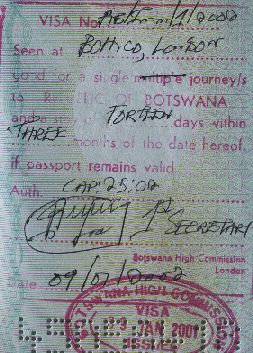 VISA No
Seen at BOHICO, LONDON
good for a single multiple journey/s
to REPUBLIC OF BOTSWANA
and stay of FORTEEN days within
THREE months of the date hereof,
if passport remains valid
Auth CAP 25:02
1st SECRETARY
Botswana High Commission
London
Date 09/01/2002
BOTSWANA HIGH COMMISSION
VISA
9 JAN 2001
ISSUED